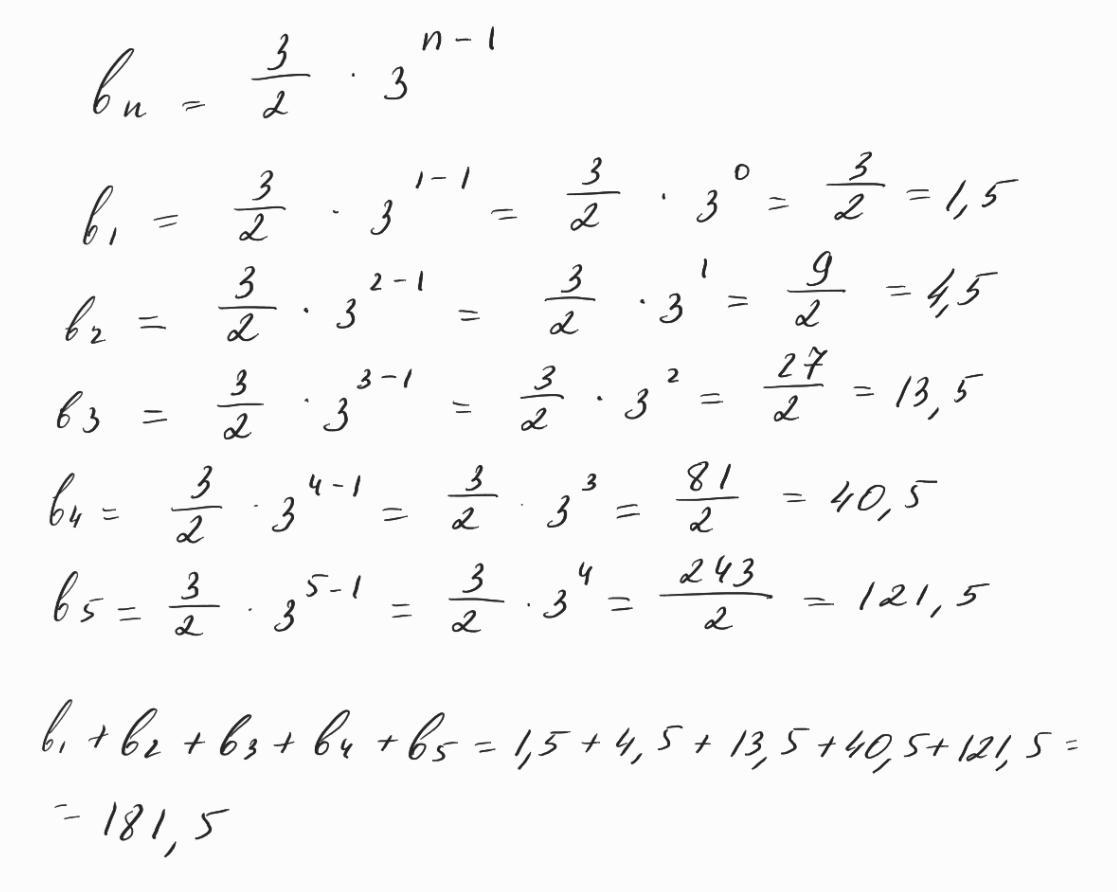 bₙ = 3/2 · 3^(n-1)
b₁ = 3/2 · 3^(1-1) = 3/2 · 3^0 = 3/2 = 1,5
b₂ = 3/2 · 3^(2-1) = 3/2 · 3^1 = 9/2 = 4,5
b₃ = 3/2 · 3^(3-1) = 3/2 · 3^2 = 27/2 = 13,5
b₄ = 3/2 · 3^(4-1) = 3/2 · 3^3 = 81/2 = 40,5
b₅ = 3/2 · 3^(5-1) = 3/2 · 3^4 = 243/2 = 121,5
b₁ + b₂ + b₃ + b₄ + b₅ = 1,5 + 4,5 + 13,5 + 40,5 + 121,5 =
= 181,5